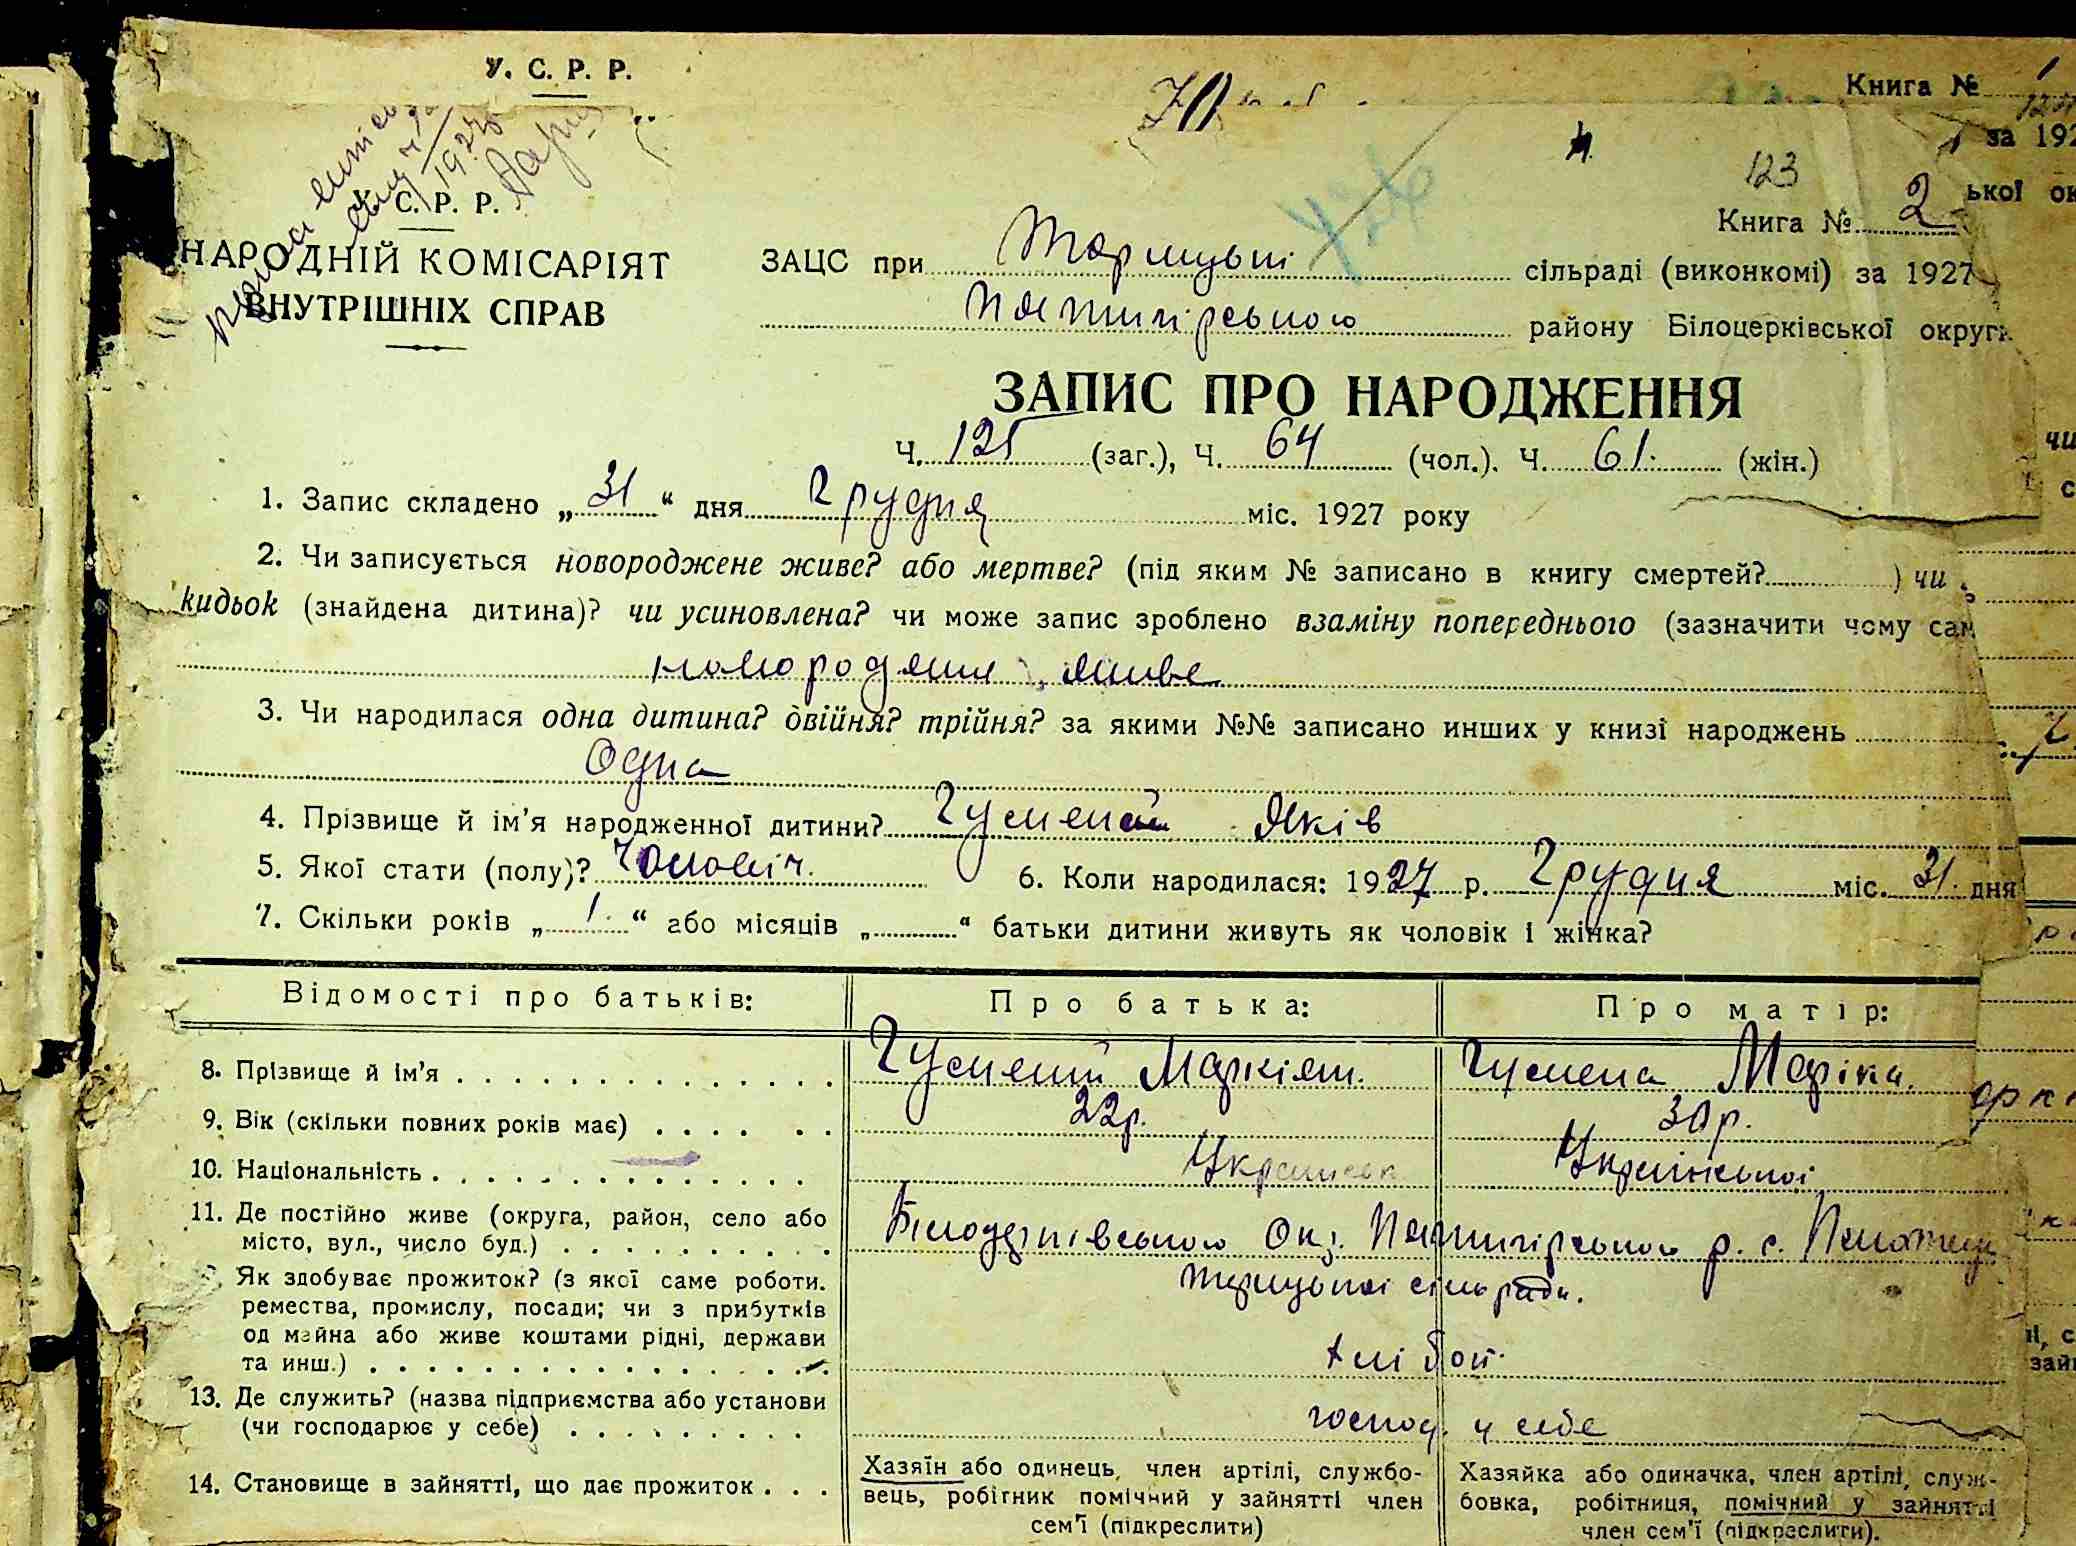 У. С. Р. Р.
Книга № 1
за 192
С. Р. Р.
123
ької ок
Книга № 2
НАРОДНІЙ КОМІСАРІЯТ
ВНУТРІШНІХ СПРАВ
ЗАЦС при Терицькі сільраді (виконкомі) за 1927
Пятигірського району Білоцерківської округи
ЗАПИС ПРО НАРОДЖЕННЯ
Ч. 125 (заг.), Ч. 64 (чол.). Ч. 61. (жін.)
1. Запис складено „31“ дня Грудня міс. 1927 року
2. Чи записується новороджене живе? або мертве? (під яким № записано в книгу смертей? ) чи
кидьок (знайдена дитина)? чи усиновлена? чи може запис зроблено взаміну попереднього (зазначити чому сам
живе
3. Чи народилася одна дитина? двійня? трійня? за якими №№ записано инших у книзі народжень
Одна
4. Прізвище й ім'я народженної дитини? Яків
5. Якої стати (полу)? Чоловіч. 6. Коли народилася: 1927 р. Грудня міс. 31 дня
7. Скільки років „1.“ або місяців „ “ батьки дитини живуть як чоловік і жінка?
Відомості про батьків: Про батька: Про матір:
8. Прізвище й ім'я Маркіян. Маріна.
9. Вік (скільки повних років має) 22р. 30р.
10. Національність Українськ Української
11. Де постійно живе (округа, район, село або
місто, вул., число буд.) Білоцерківського Окр. Пятигірського р. с.
сільради.
Як здобуває прожиток? (з якої саме роботи.
ремества, промислу, посади; чи з прибутків
од майна або живе коштами рідні, держави
та инш.) хлібор.
13. Де служить? (назва підприємства або установи
(чи господарює у себе) господ. у себе
14. Становище в зайнятті, що дає прожиток
Хазяїн або одинець, член артілі, службо-
вець, робітник помічний у зайнятті член
сем'ї (підкреслити)
Хазяйка або одиначка, член артілі, служ-
бовка, робітниця, помічний у зайнятті
член сем'ї (підкреслити).